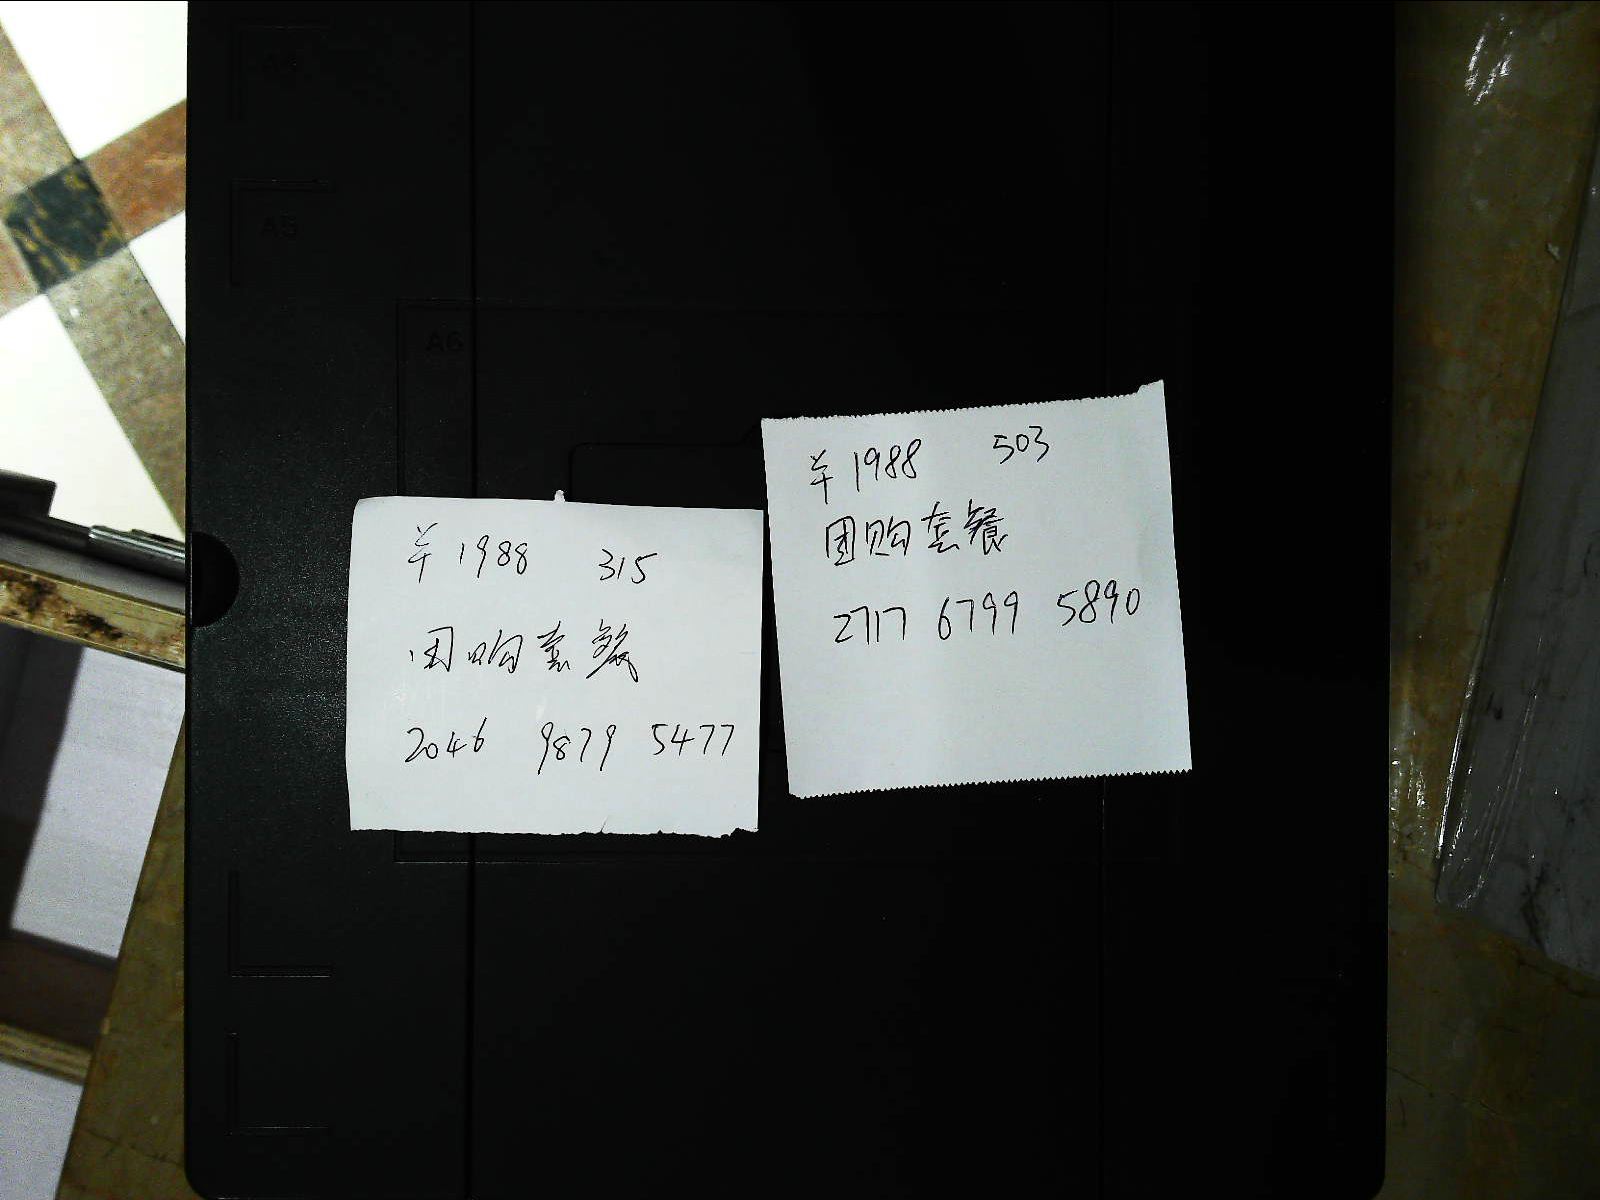 A4
A5
A6
羊 1988 315
团购套餐
2046 9879 5477
羊 1988 503
团购套餐
2717 6799 5890